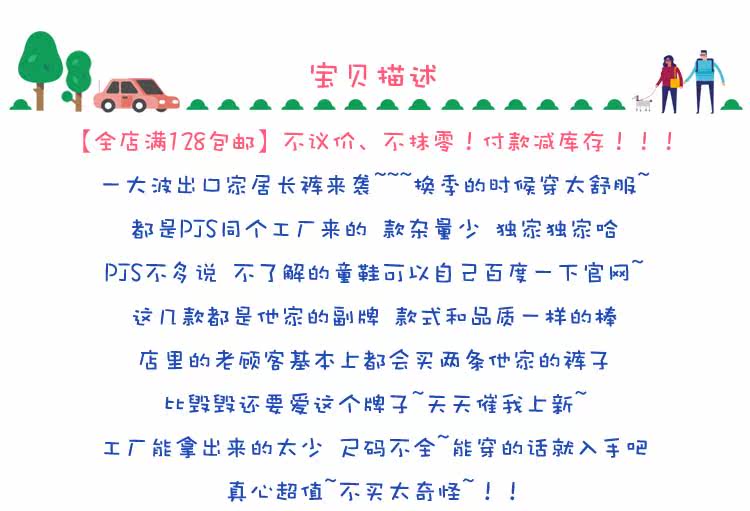 宝贝描述
【全店满128包邮】不议价、不抹零！付款减库存！！！
一大波出口家居长裤来袭~~~换季的时候穿太舒服~
都是PJS同个工厂来的 款杂量少 独家独家哈
PJS不多说 不了解的童鞋可以自己百度一下官网~
这几款都是他家的副牌 款式和品质一样的棒
店里的老顾客基本上都会买两条他家的裤子
比毁毁还要爱这个牌子~天天催我上新~
工厂能拿出来的太少 尺码不全~能穿的话就入手吧
真心超值~不买太奇怪~！！